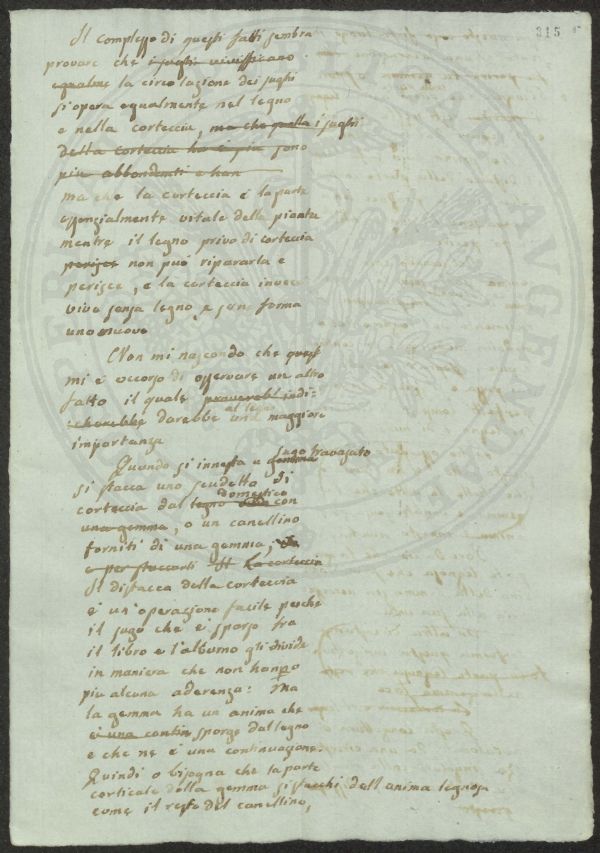 315
Il complesso di questi fatti sembra
provare che i sughi vivificano
egualme la circolazione dei sughi
si opera egualmente nel legno
e nella corteccia, ma che quella i sughi
della corteccia ha è più sono
più abbondanti e han
ma che la corteccia è la parte
essenzialmente vitale della pianta
mentre il legno privo di corteccia
perisce non può ripararla e
perisce, e la corteccia invece
vive senza legno, e sene forma
uno nuovo
Non mi nascondo che quest
mi è occorso di osservare un altro
fatto il quale proverebb indi-
cherebbe darebbe al legno una maggiore
importanza
Quando si innesta a gemma sugo travasato
si stacca uno scudetto di
corteccia dal legno domestico con
una gemma, o un canellino
forniti di una gemma;
e per staccarli Il La corteccia
Il distacco della corteccia
è un'operazione facile perchè
il sugo che è sparso tra
il libro e l'alburno gli divide
in maniera che non hanno
più alcuna aderenza: Ma
la gemma ha un anima che
è una contin sporge dal legno
e che ne è una continuazione.
Quindi o bisogna che la parte
corticale della gemma si stacchi dall anima legnosa
come il resto del canellino,